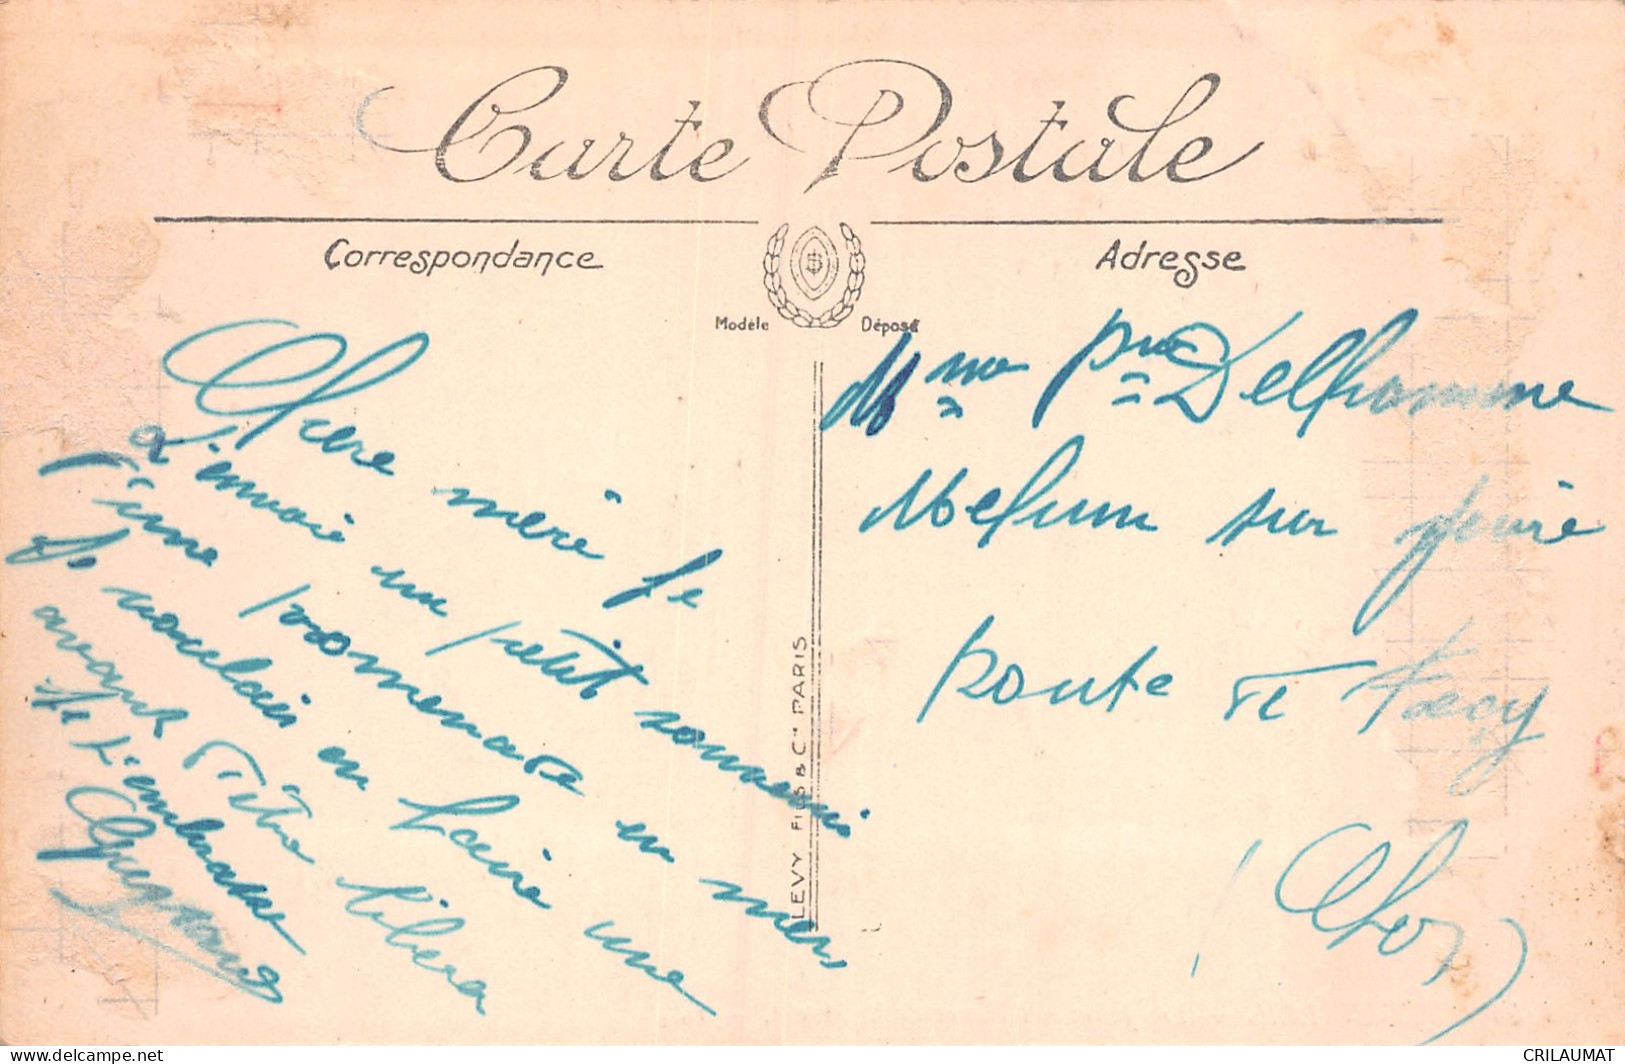 Carte Postale
Correspondance
Adresse
Modèle Déposé
Chere mère Je
t'envoie un petit souvenir
d'une promenade en mer
Je voulais en faire une
avant d'être libéra
Je t'embrasse
LEVY FILS & Cie PARIS
Mme Delhomme
Mehun sur yèvre
Route de
(Cher)
delcampe.net
CRILAUMAT